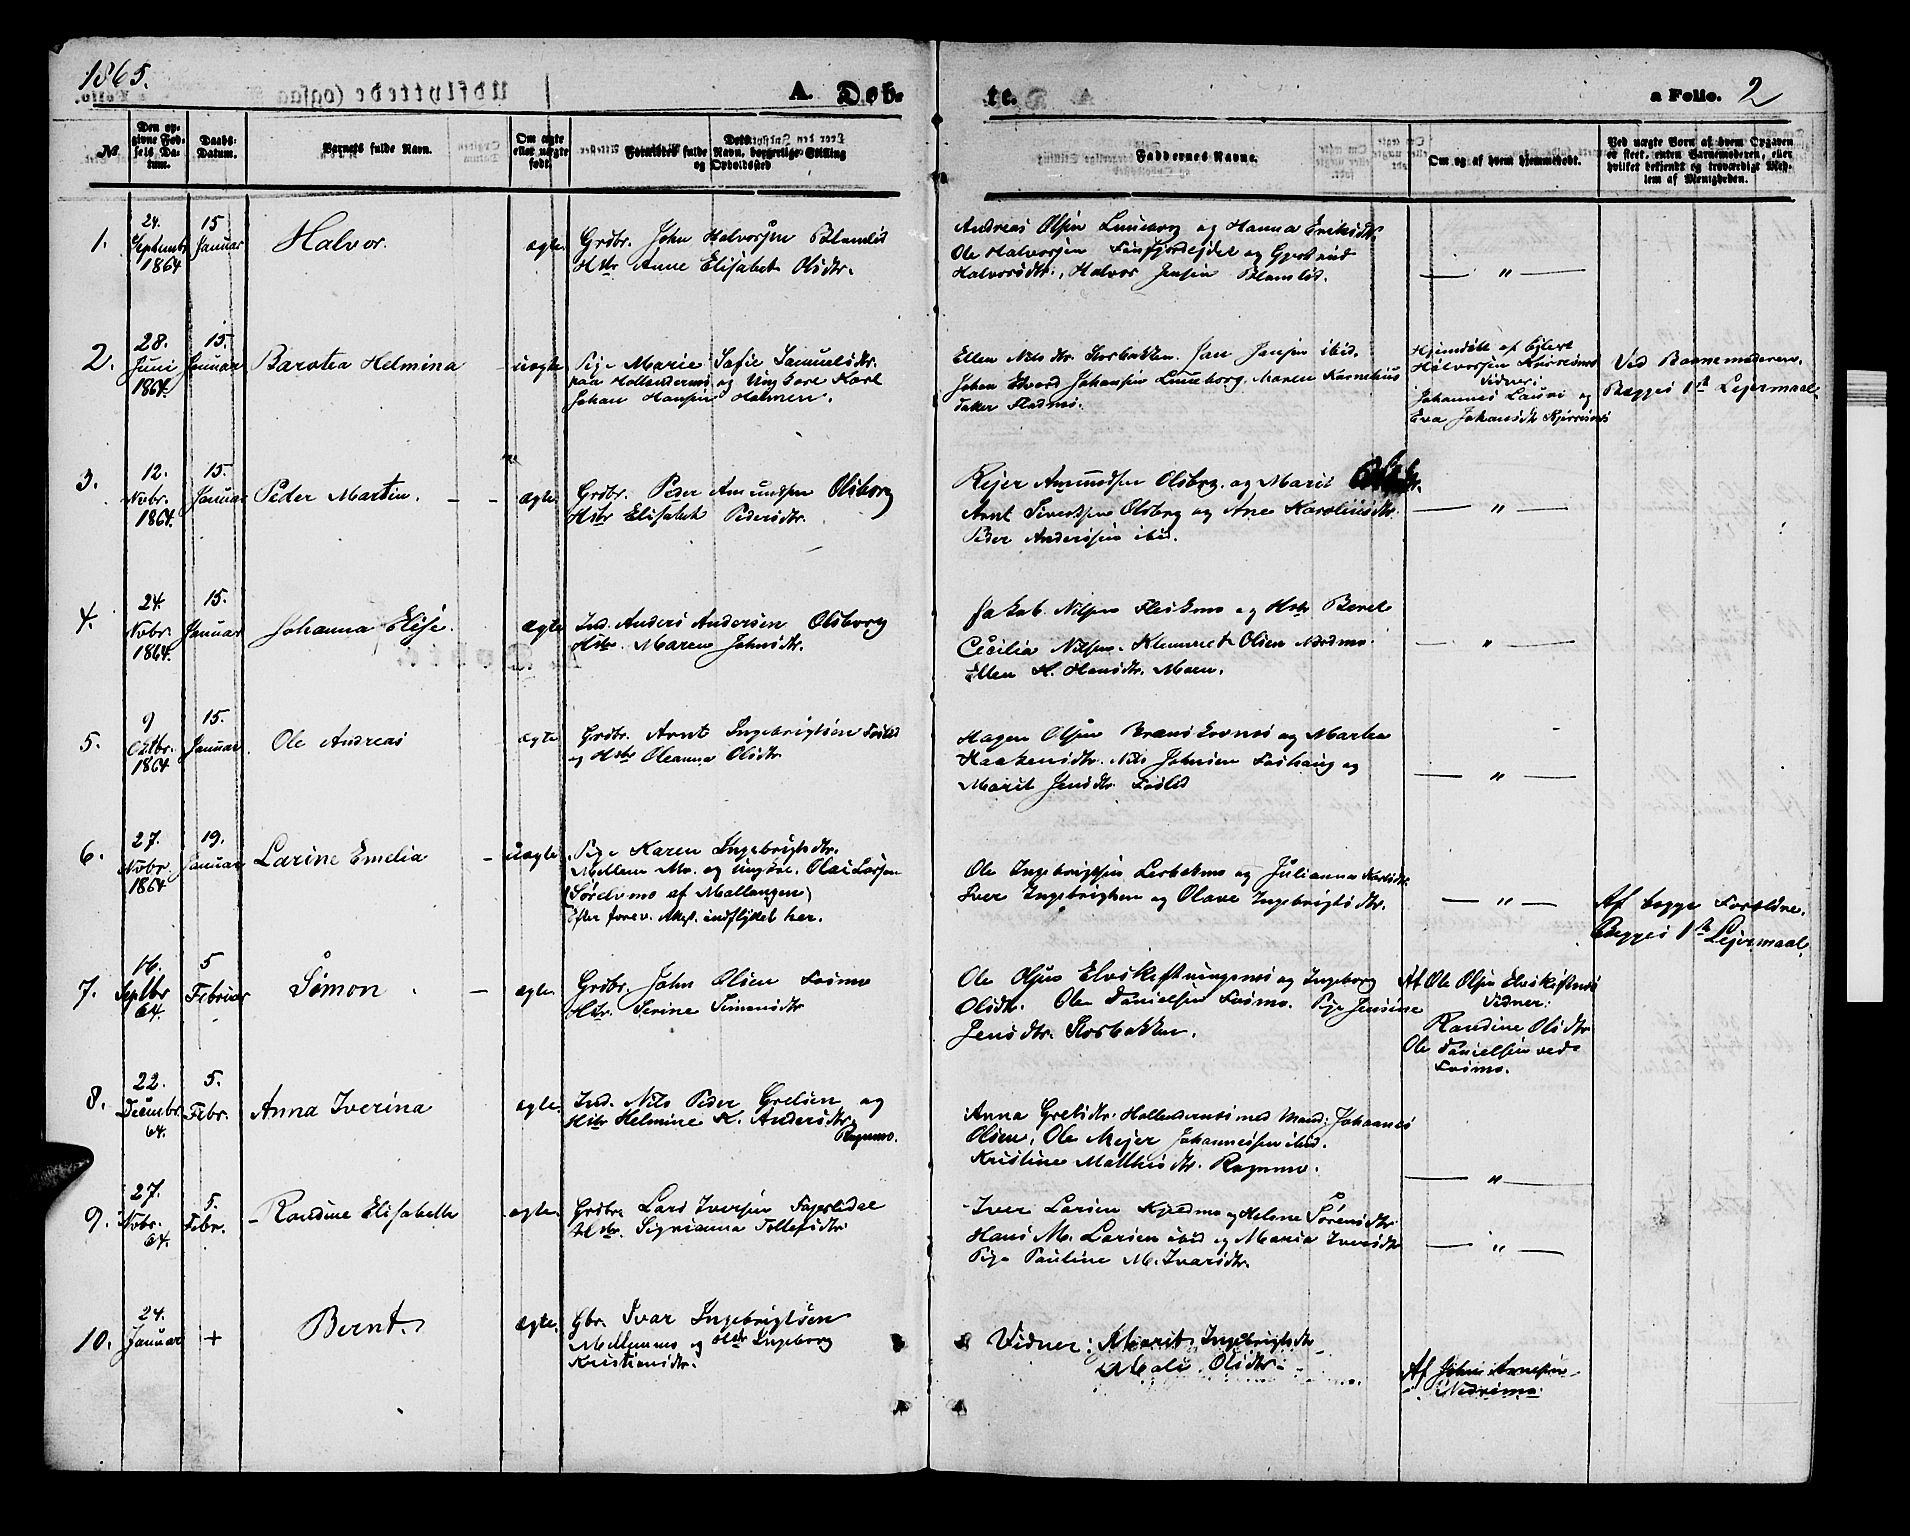 1865.
A. Døb-
te.
a Folio. 2
No.
Den op-
givne Fød-
sels Da-
tum.
Daabs-
Datum.
Barnets fulde Navn.
Om ægte
eller uægte
født.
Forældres fulde Navn, borgerlige Stilling
og Opholdssted
Faddernes Navne.
Om og af hvem hjemmedøbt.
Ved uægte Børn af hvem Opgaven
er skeet, enten Barnemoderen, eller
hvilket bekjendt og troværdigt Med-
lem af Menigheden.
1.
24.
Septembr
1864
15
Januar
Halvor.
ægte.
Grdbr. John Halvorsen
Hstr Anne Elisabet Olsdtr.
Andreas Olsen Luneborg og Hanna Eriksdtr.
Ole Halvorsen Finfjordejdet og
Halvorsdtr., Halvor Jensen
— " —
2.
28.
Juni
1864
15.
Januar
Barotea Helmina
uægte
Pige Marie Sofie Samuelsdtr.
paa Hollendernes og Ungkarl Karl
Johan Hansen Holmen.
Ellen Nilsdtr. Storbakken. Jan Jansen ibid.
Johan Edvard Johansen Luneborg. Maren Kornelius
datter Fladmo.
Hjemdøbt af Eglert
Halvorsen Kjerresnes
Vidner:
Johannes Lausi og
Eva Johansdtr Kjerresnes
Ved Barnemoderen.
Begges 1st Lejermaal
3.
12.
Novbr.
1864.
15.
Januar
Peder Martin. - -
ægte.
Grdbr. Peder Amundsen Olsborg
Hstr Elisabeth Pedersdtr.
Rejer Amundsen Olsborg. og Marit
Arnt Sivertsen Olsborg og Ane Karolinsdtr.
Peder Andersen ibid.
— " —
4.
24.
Novbr.
1864.
15.
Januar
Johanna Elise.
ægte
Ind. Anders Andersen Olsborg
Hstr. Maren Johnsdtr.
Jakob Nilsen Fleskmo og Hstr Beret
Cecilia Nilsen. Klemmet Olsen Nordmo
Ellen H. Hansdtr. Moen.
— " —
5.
9
Oktbr.
1864
15.
Januar
Ole Andreas
ægte
Grdbr. Arnt Ingebrigtsen Foslid
og Hstr Oleanna Olsdtr.
Hagen Olsen Brændskognes og Martha
Haakensdtr. Nils Johnsen Foshaug og
Marit Jensdtr. Foslid
— " —
6.
27.
Novbr.
1864
19.
Januar
Larine Emelia
uægte
Pige Karen Ingebrigtsdtr.
Mellem Mo. og Ungkar. Olai Larsen
(Sørdmo af Mallangen)
Efter forev. Atest. indflyttet her.
Ole Ingebrigtsen og Julianna Karlsdtr.
Iver Ingebrigtsen og Olave Ingebrigtsdtr.
— " —
Af begge Forældre.
Begges 1st Lejermaal.
7.
16.
Septbr
64.
5
Februar
Simon . —
ægte.
Grdbr. John Olsen Fosmo
Hstr. Serine Simonsdtr
Ole Olsen Elvskiftningnes og Ingeborg
Olsdtr. Ole Danielsen Fosmo. Pige Jensine
Jensdtr. Storbakken.
Af Ole Olsen Elvskiftnes
Vidner:
Randine Olsdtr
Ole Danielsen ved
Fosmo.
8.
22.
Decembr.
64.
5.
Febr.
Anna Iverina
ægte.
Ind. Nils Peder Grelsen og
Hstr Helmine K. Andersdtr.
Rognmo.
Anna Grelsdtr. Hollendernes med Mand: Johannes
Olsen, Ole Mejer Johannessen ibid.
Kristine Mathisdtr. Rognmo.
— " —
9.
27.
Novbr.
64.
5.
Febr.
Randine Elisabeth
ægte.
Grdbr. Lars Iversen Fagerlidal
Hstr. Sigrianna Tollefsdtr
Iver Larsen Kjedmo og Helene Sørensdtr.
Hans M. Larsen ibid og Maria Iversdtr
Pige Pauline M. Ivarsdtr.
— " —
10.
24.
Januar
+
Bernt.
ægte.
Gbr. Ivar Ingebrigtsen
Mellemmo og Hstr Ingeborg
Kristiansdtr.
Vidner: Marit Ingebrigtsdtr
Mali Olsdtr.
Af John Arnesen
Nedremo.